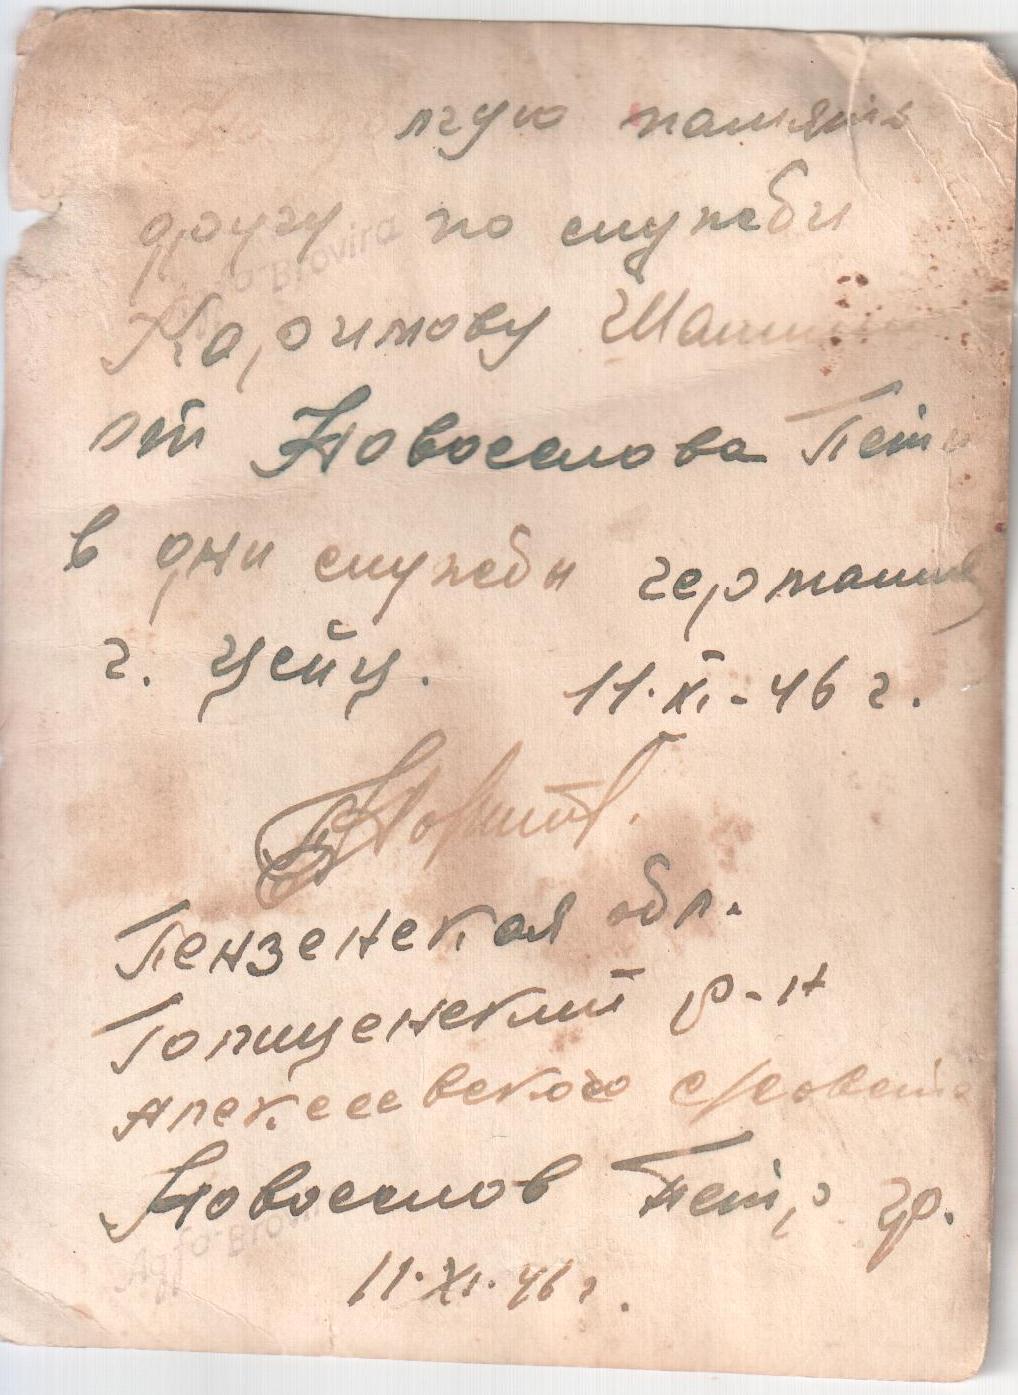 лгую память
другу по службы
Каримову
от Новоселова Пети
в дни службы германия
г. Цейц. 11·XI-46 г.
Пензенская обл.
Голищенский р-н
Алексеевского с/совета
Новоселов Петр гр.
11·XI·46 г.
Agfa-Brovira